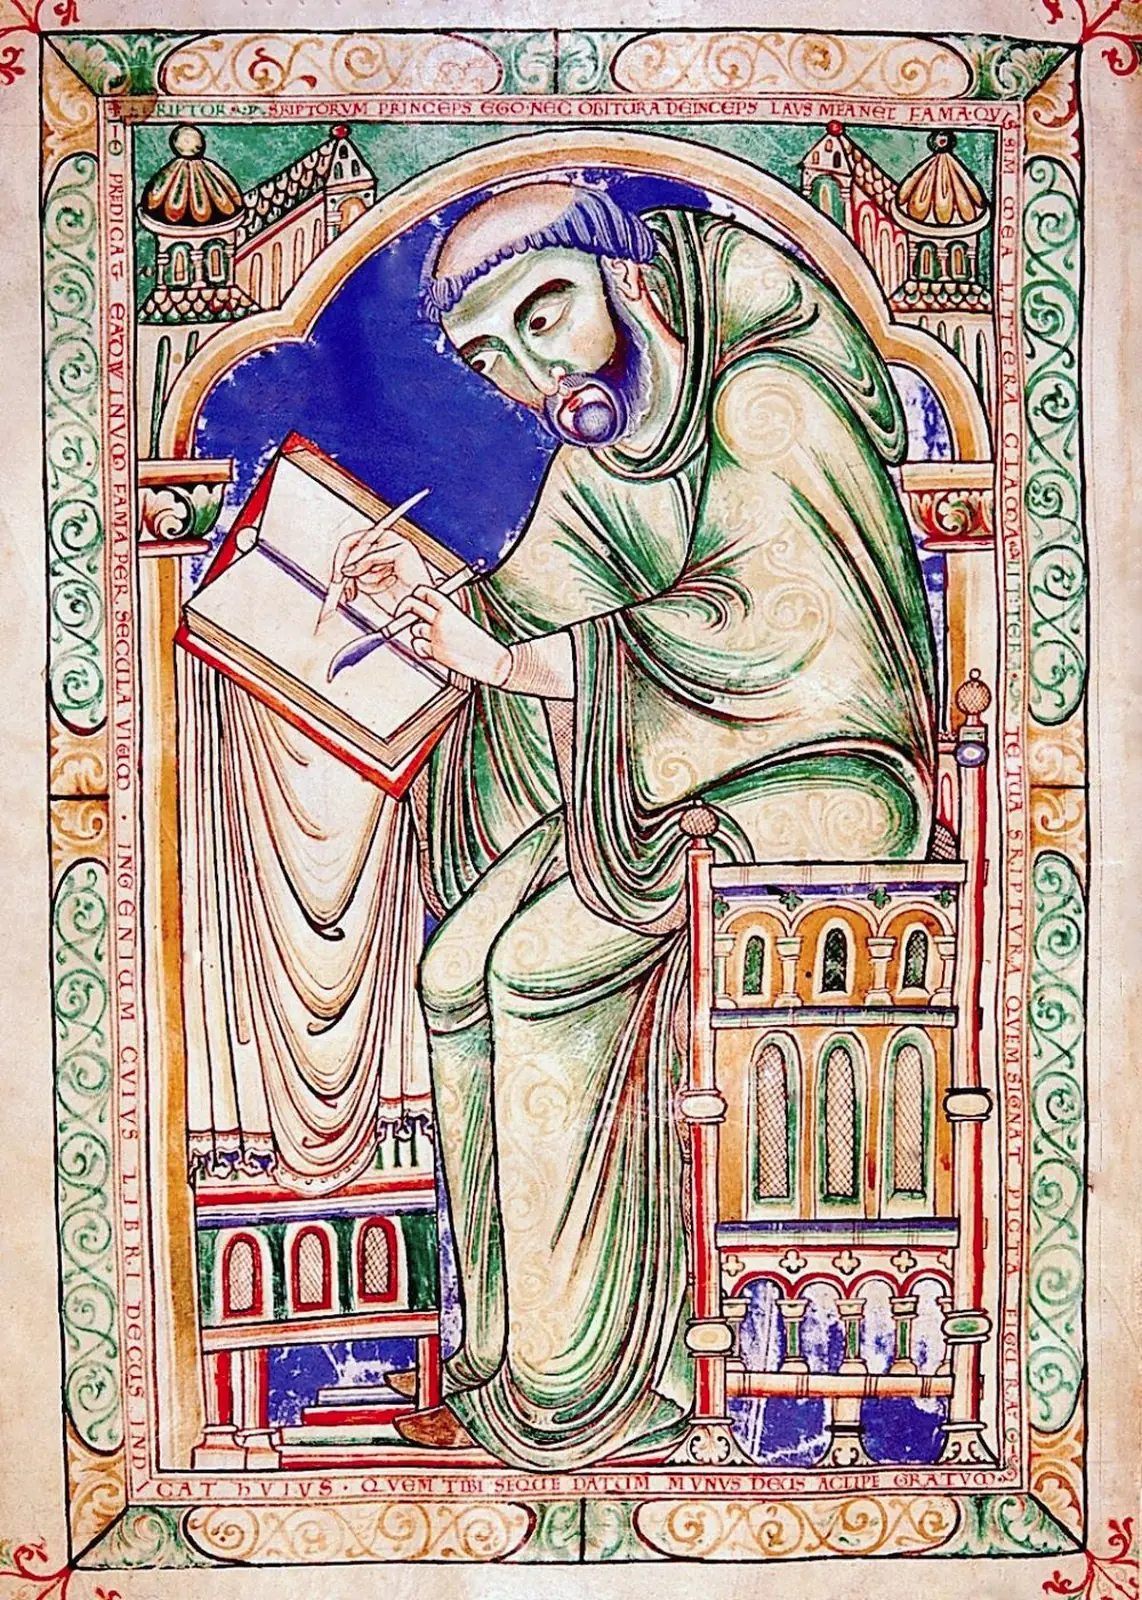 SCRIPTOR SRIPTORVM PRINCEPS EGO·NEC OBITURA DEINCEPS LAVS MEA NEC FAMA·QVIS
SIM MEA LITTERA CLAMA LITTERA· TE TUA SRIPTURA QVEM SIGNAT PICTA FIGURA·
PREDICAT EADWINVM FAMA PER SECULA VIVUM · INGENIUM CVIVS LIBRI DECUS IND
ICAT hVIVS · QVEM TIBI SEQUE DATUM MVNVS DEUS ACCIPE GRATVM·